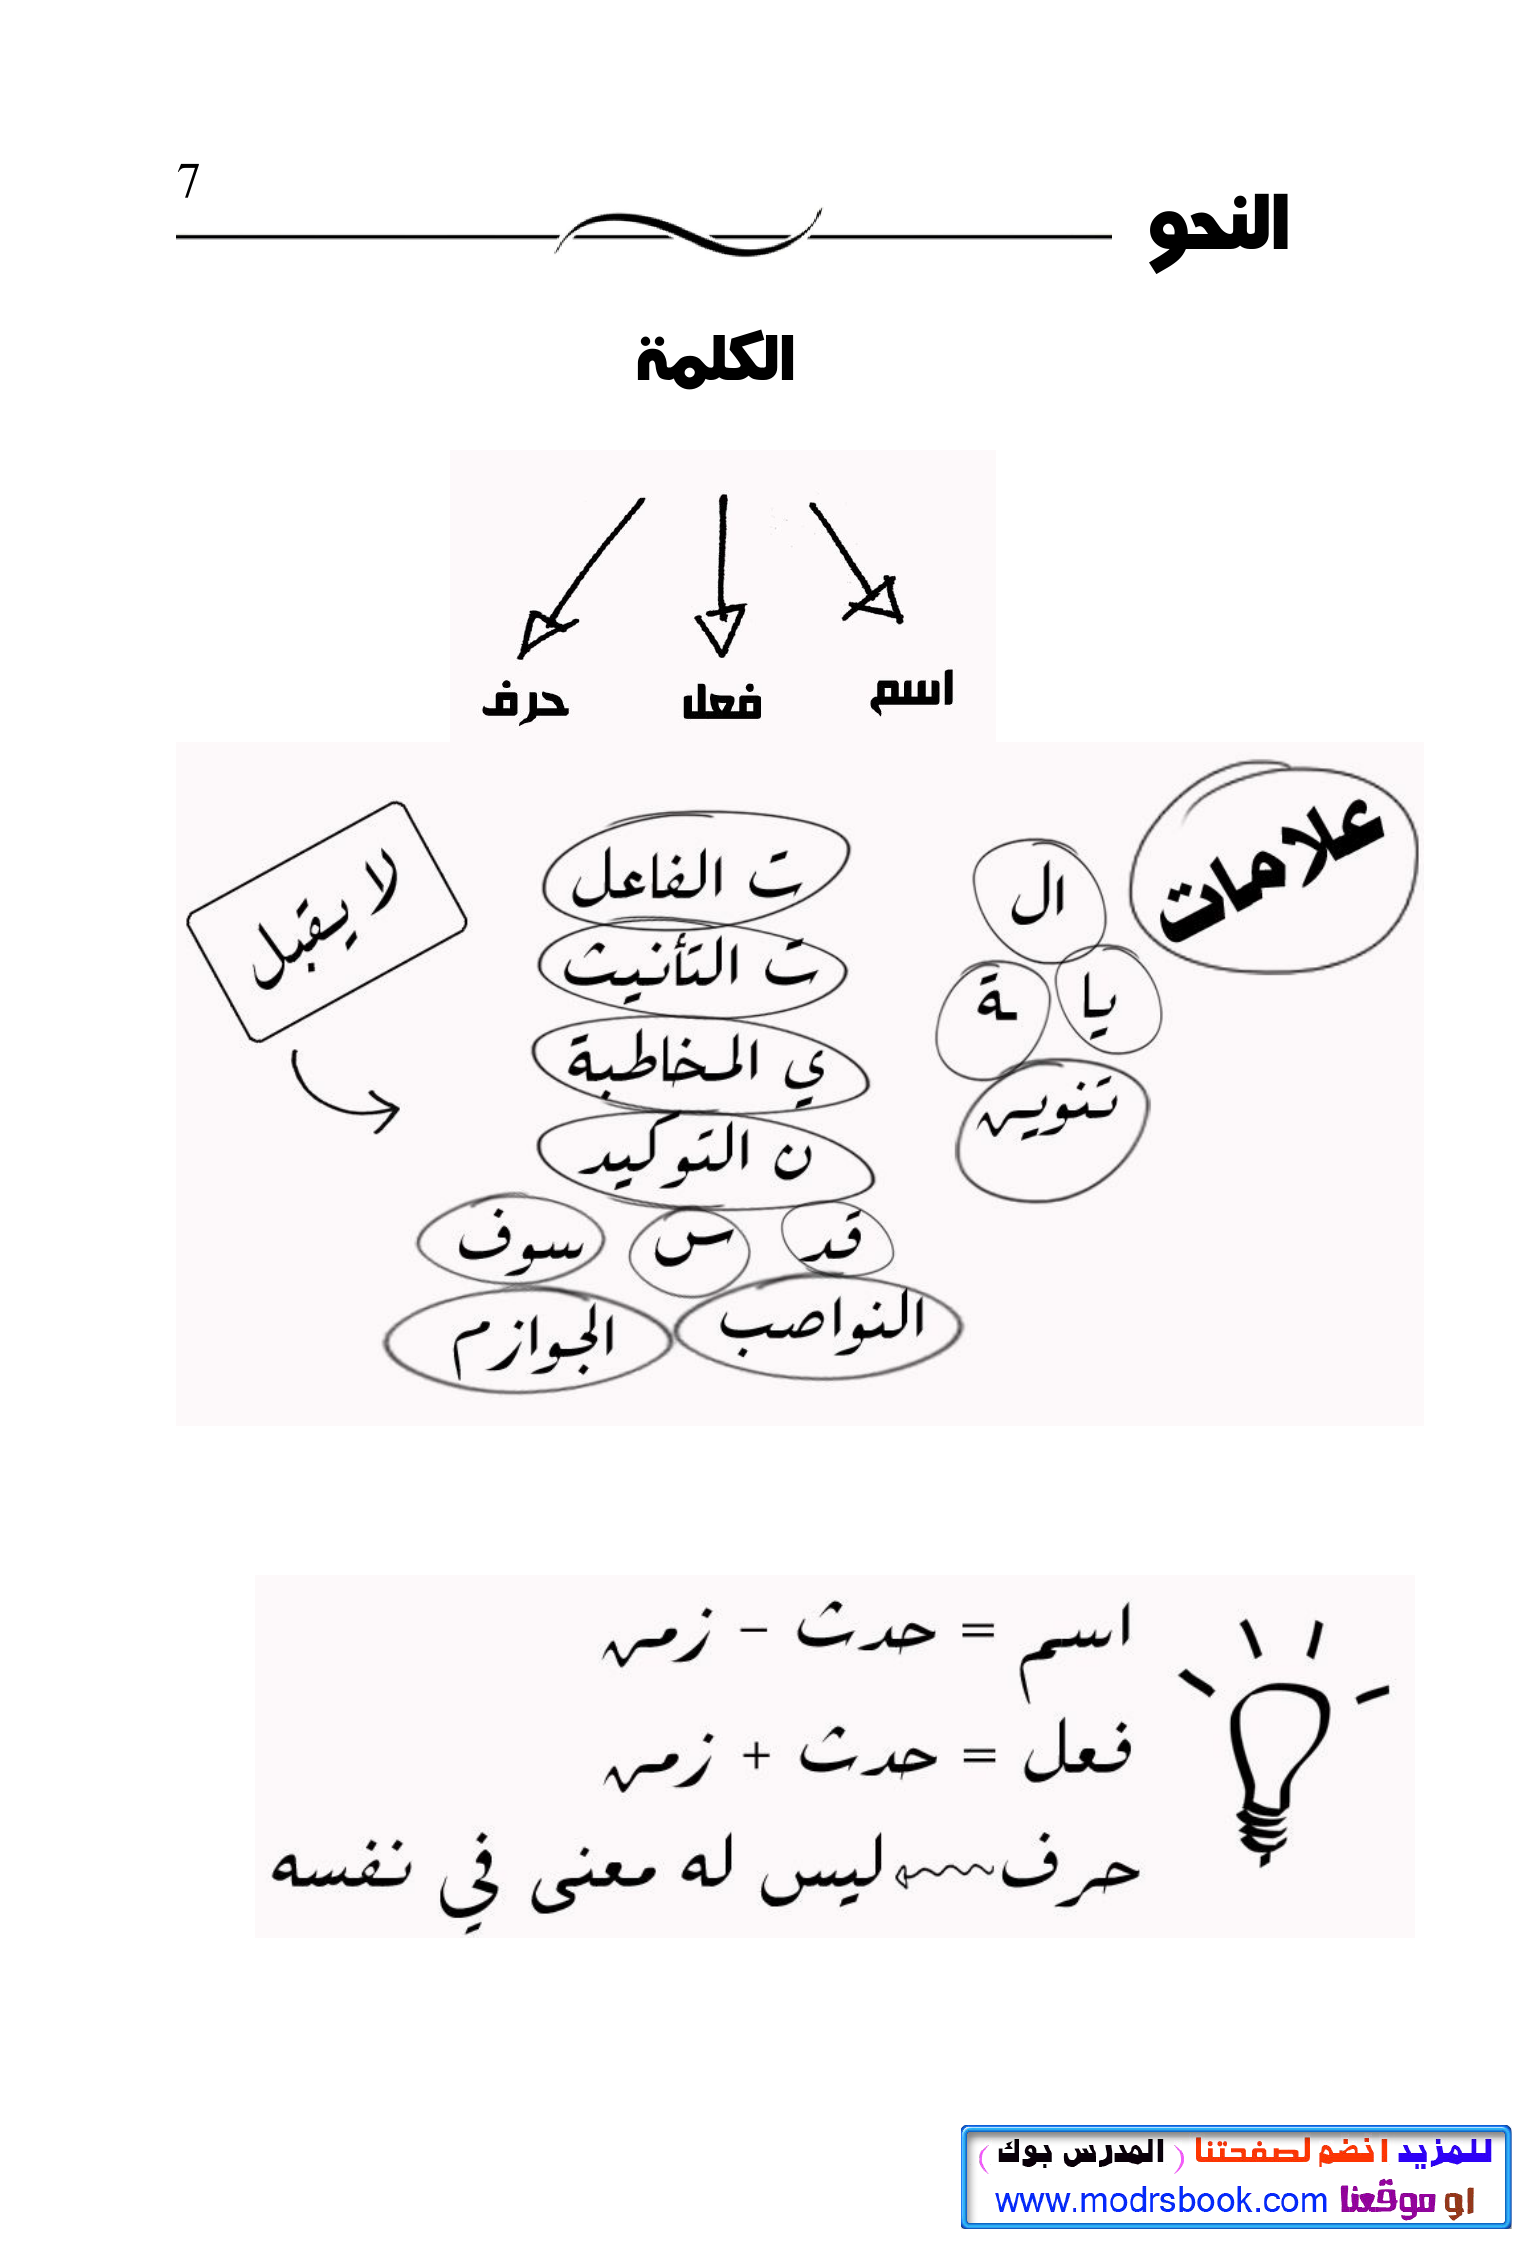 7
النحو
الكلمة
اسم فعل حرف
علامات
ال
يا ـة
تنوين
ت الفاعل
ت التأنيث
ي المخاطبة
ن التوكيد
قد س سوف
النواصب الجوازم
لا يقبل
اسم = حدث - زمن
فعل = حدث + زمن
حرف ليس له معنى في نفسه
للمزيد انضم لصفحتنا ( المدرس بوك )
او موقعنا www.modrsbook.com